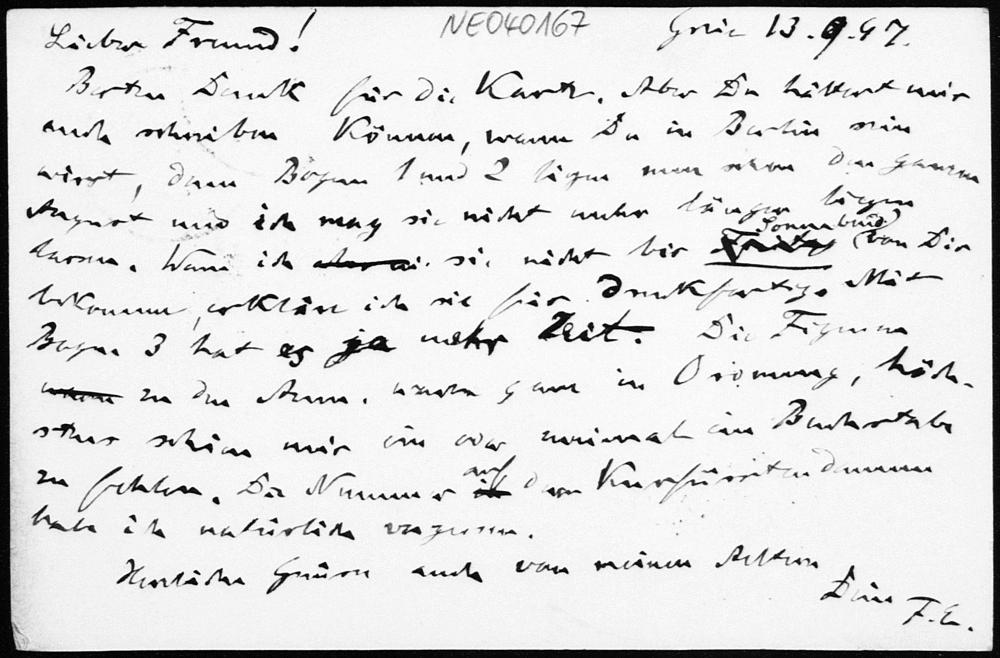 NE040167
Lieber Freund! Grüc 13.9.97.
Besten Dank für die Karte. Aber Du hättest mir
auch schreiben können, wann Du in Berlin sein
wirst, denn Bogen 1 und 2 liegen nun schon den ganzen
August und ich mag sie nicht mehr länger liegen
lassen. Wenn ich sie nicht bis Sonnabend von Dir
bekomme, erkläre ich sie für druckfertig. Mit
Bogen 3 hat es ja mehr Zeit. Die Figuren
zu den Anm. waren ganz in Ordnung, höch-
stens schien mir ein oder zweimal ein Buchstabe
zu fehlen. Die Nummer auf dem Kurfürstendamm
habe ich natürlich vergessen.
Herzliche Grüsse auch von meinen Eltern
Dein F.E.